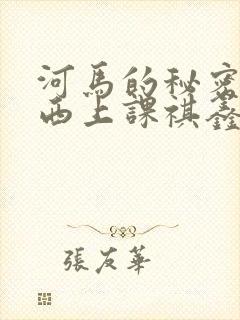 河馬的秘密
西上課祺鑫
張友華